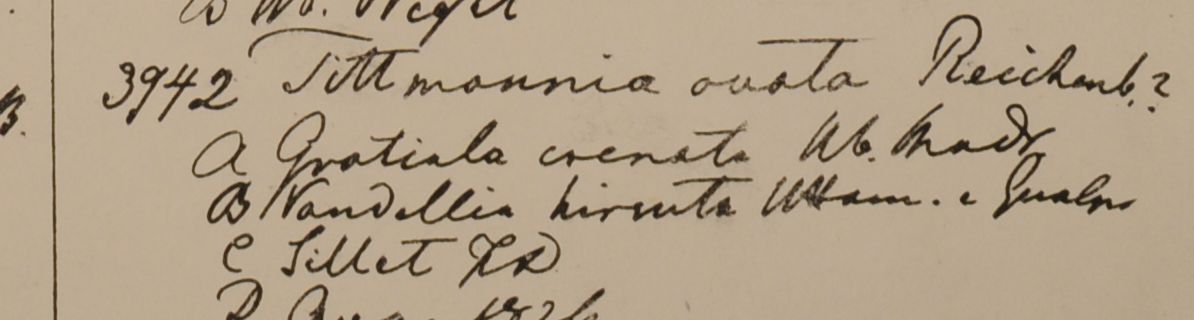 B
3942 Tittmannia ovata Reichenb.?
A Gratiola crenata Hb. Madr
B Vandellia hirsuta Ham. e Gualp
C Sillet FD
D 1826
B.